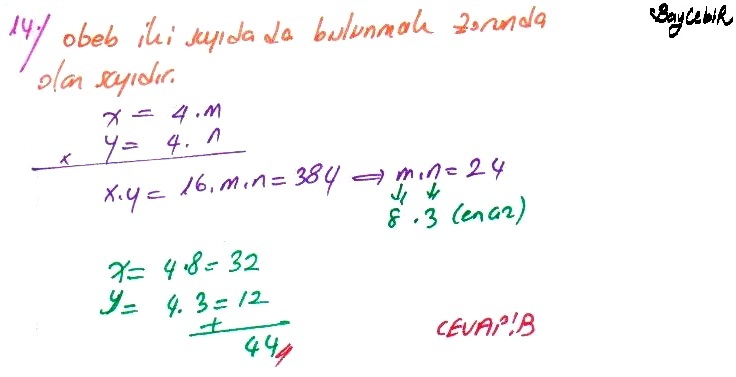 BayCebiR
14) obeb iki sayıda da bulunmak zorunda
olan sayıdır.
x = 4.m
x y = 4. n
x.y = 16.m.n = 384 ⇒ m.n = 24
↓ ↓
8 . 3 (en az)
x = 4.8 = 32
y = 4.3 = 12
+
44
CEVAP: B